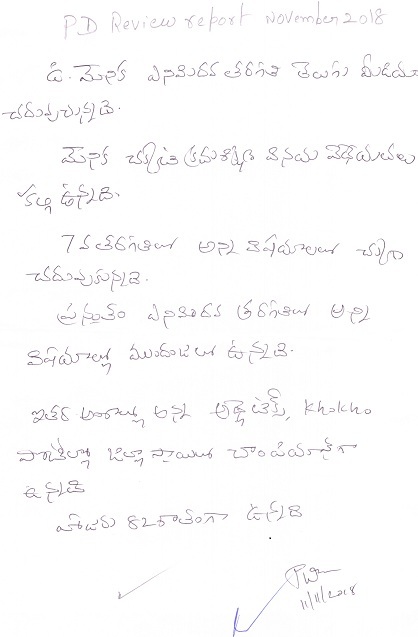 PD Review report november 2018
డి. మేనక ఎనిమిదవ తరగతి తెలుగు మీడియం
చదువుచున్నది.
మేనక చక్కటి క్రమశిక్షణ వినయ విధేయతలు
కల్గి ఉన్నది.
7వ తరగతిలో అన్ని విషయాలలో చక్కగా
చదువుకున్నది.
ప్రస్తుతం ఎనిమిదవ తరగతిలో అన్ని
విషయాల్లో ముందంజలో ఉన్నది.
ఇతర అంశాల్లు అన్ని అథ్లెటిక్స్, Khokho
పోటీల్లో జిల్లా స్థాయిలో చాంపియన్‌గా
ఉన్నది
హాజరు 82 శాతంగా ఉన్నది
11/11/2018